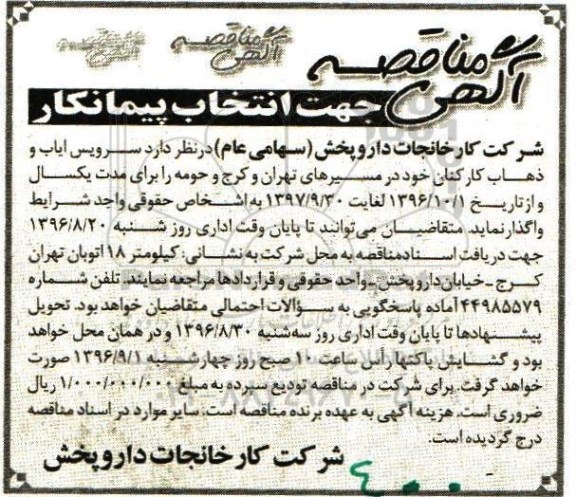 آگهی مناقصه
آگهی مناقصه
آگهی مناقصه
جهت انتخاب پیمانکار
شرکت کارخانجات داروپخش (سهامی عام) در نظر دارد سرویس ایاب و
ذهاب کارکنان خود در مسیرهای تهران و کرج و حومه را برای مدت یکسال
و از تاریخ ۱۳۹۶/۱۰/۱ لغایت ۱۳۹۷/۹/۳۰ به اشخاص حقوقی واجد شرایط
واگذار نماید. متقاضیان می‌توانند تا پایان وقت اداری روز شنبه ۱۳۹۶/۸/۲۰
جهت دریافت اسناد مناقصه به محل شرکت به نشانی: کیلومتر ۱۸ اتوبان تهران
کرج - خیابان داروپخش - واحد حقوقی و قراردادها مراجعه نمایند. تلفن شماره
۴۴۹۸۵۵۷۹ آماده پاسخگویی به سؤالات احتمالی متقاضیان خواهد بود. تحویل
پیشنهادها تا پایان وقت اداری روز سه‌شنبه ۱۳۹۶/۸/۳۰ و در همان محل خواهد
بود و گشایش پاکتها رأس ساعت ۱۰ صبح روز چهارشنبه ۱۳۹۶/۹/۱ صورت
خواهد گرفت. برای شرکت در مناقصه تودیع سپرده به مبلغ ۱/۰۰۰/۰۰۰/۰۰۰ ریال
ضروری است. هزینه آگهی به عهده برنده مناقصه است. سایر موارد در اسناد مناقصه
درج گردیده است.
شرکت کارخانجات داروپخش